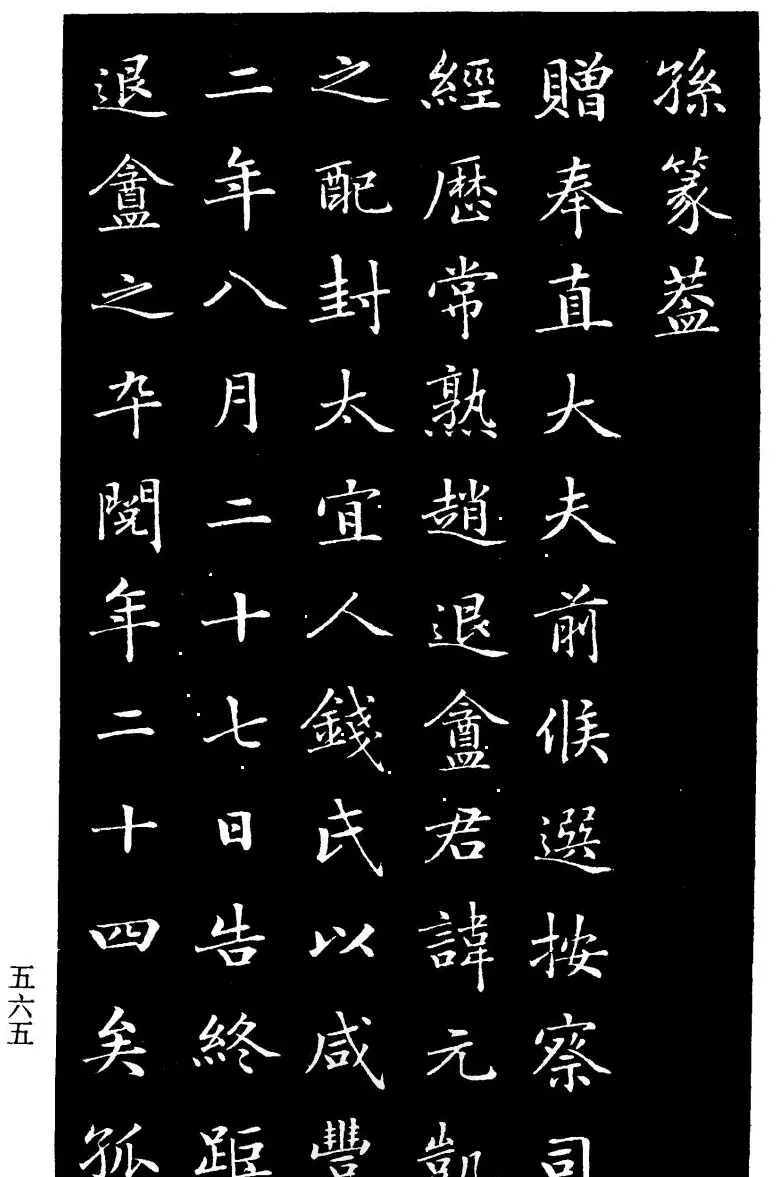 孫篆蓋
贈奉直大夫前候選按察司
經歷常熟趙退盦君諱元凱
之配封太宜人錢氏以咸豐
二年八月二十七日告終距
退盦之卒閱年二十四矣孤
五六五